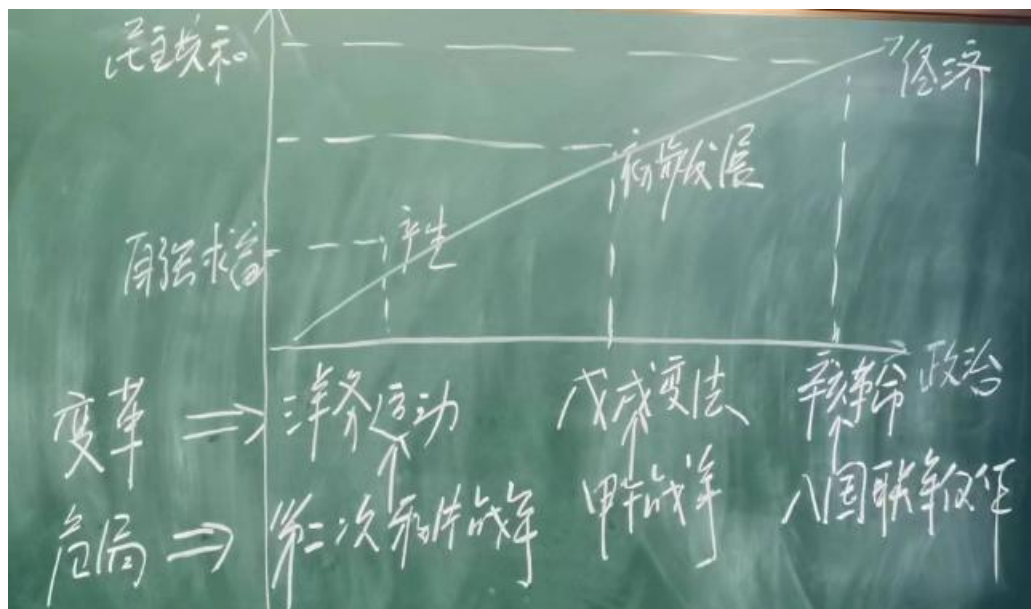 民主共和
经济
初步发展
产生
自强求富
政治
变革 ⇒ 洋务运动 戊戌变法 辛亥革命
危局 ⇒ 第二次鸦片战争 甲午战争 八国联军侵华